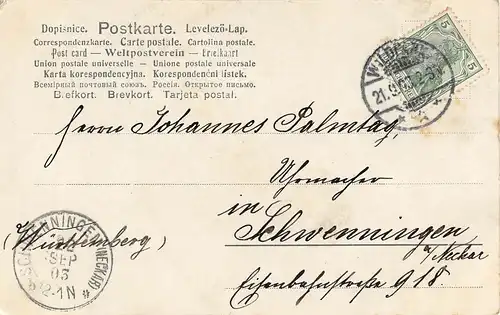 Dopisnice. Postkarte. Levelező-Lap.
Correspondenzkarte. Carte postale. Cartolina postale.
Post card — Weltpostverein — Briefkaart
Union postale universelle — Unione postale universale
Karta korespondencyjna. Korespondenční lístek.
Всемірный почтовый союзъ. Россія. Открытое письмо.
Brefkort. Brevkort. Tarjeta postal.
5 5
21.9.
Herrn Johannes Palmtag,
Uhrmacher
in
Schwenningen
a/Neckar
(Württemberg)
Eisenbahnstraße 918.
SCHWENNINGEN (NECKAR)
SEP
03
2-1N